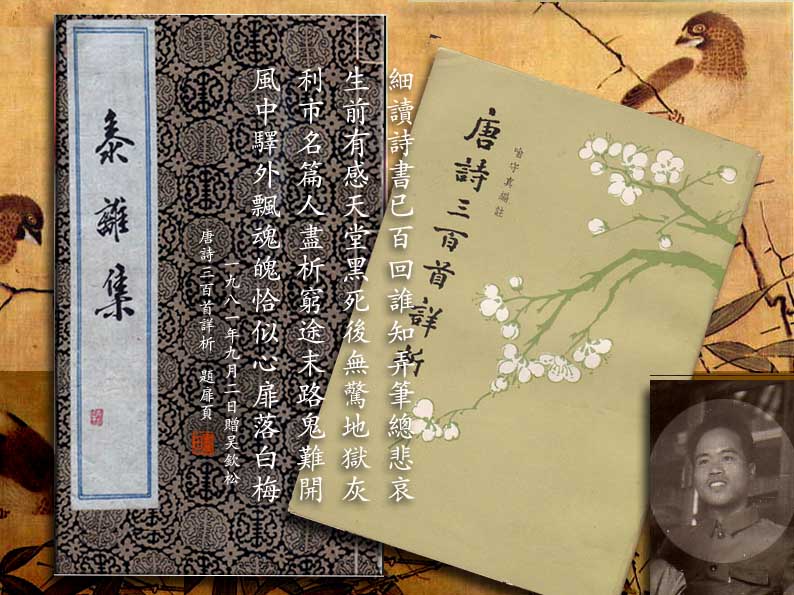 唐詩三百首詳析
喻守真編註
細讀詩書已百回誰知弄筆總悲哀
生前有感天堂黑死後無驚地獄灰
利市名篇人盡析窮途末路鬼難開
風中驛外飄魂魄恰似心扉落白梅
一九八一年九月二日贈吴欽松
唐詩三百首詳析 題扉頁
黍離集